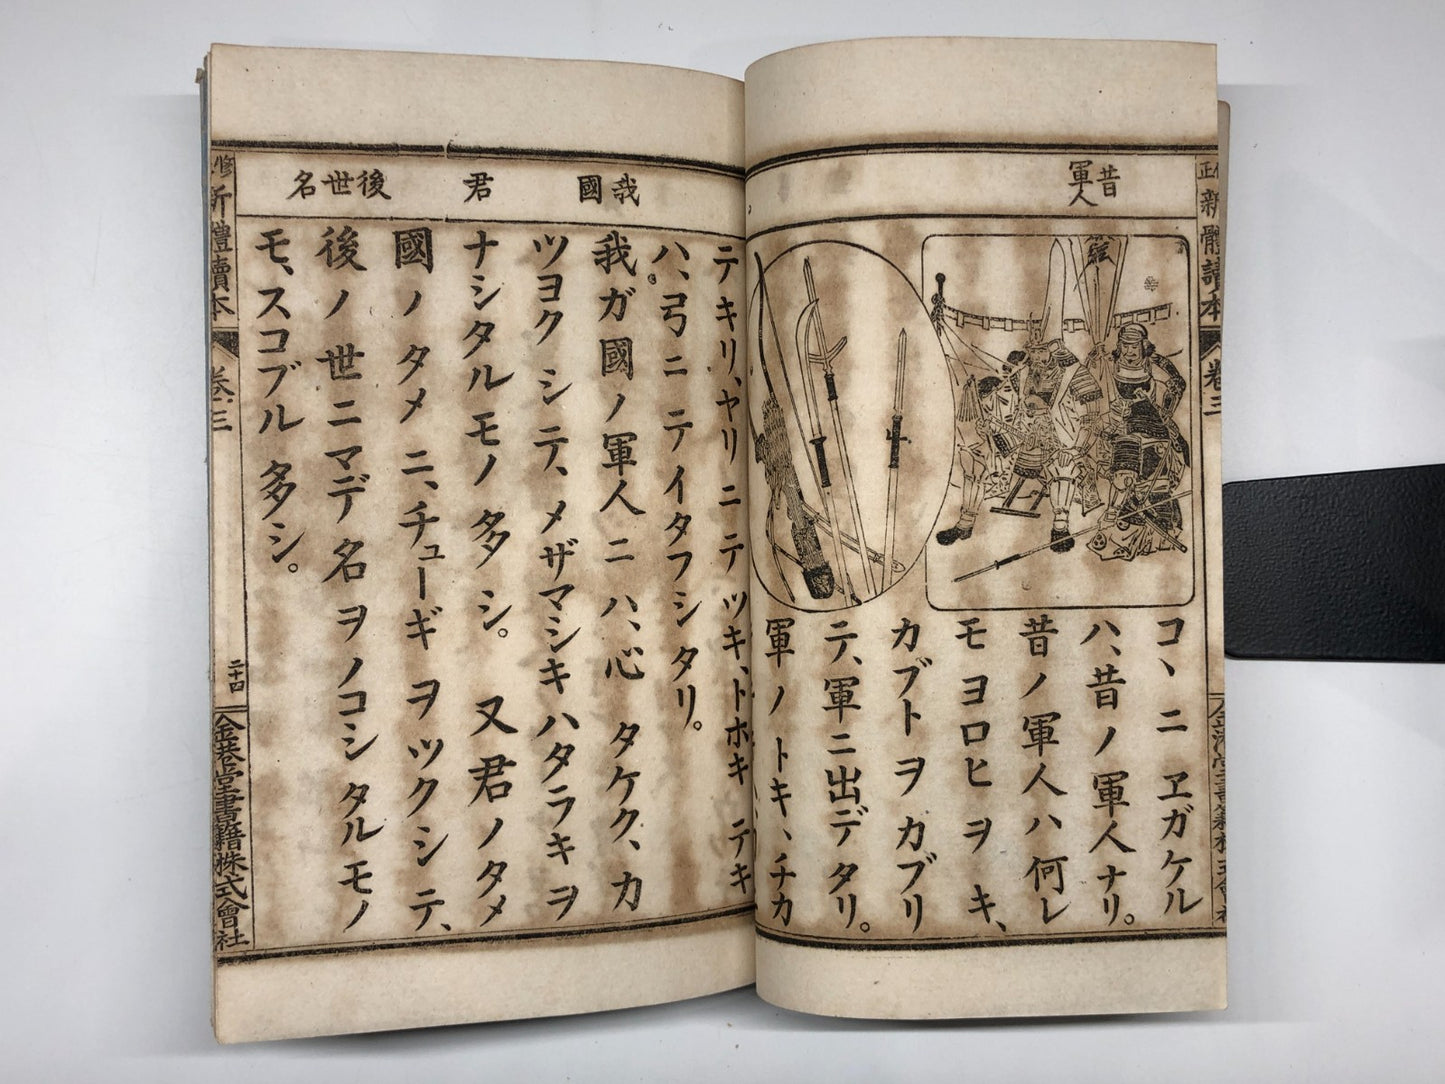 昔
軍人
コヽニ ヱガケル
ハ、昔ノ 軍人ナリ。
昔ノ 軍人ハ 何レ
モ ヨロヒ ヲ キ、
カブト ヲ カブリ
テ、軍ニ 出デタリ。
軍ノ トキ、チカ
新體讀本
卷三
我國
君
後世
名
テ キリ、ヤリ ニ テ ツキ、トホキ テキ
ハ、弓ニ テ イタフシタリ。
我ガ國ノ軍人ニハ、心 タケク、カ
ツヨク シテ、メザマシキハタラキヲ
ナシタルモノ 多シ。 又 君ノタメ
國ノ タメ ニ、チューギ ヲ ツクシテ、
後ノ 世ニマデ 名 ヲ ノコシ タルモノ
モ、スコブル 多シ。
新體讀本
卷三
二十四
金港堂書籍株式會社